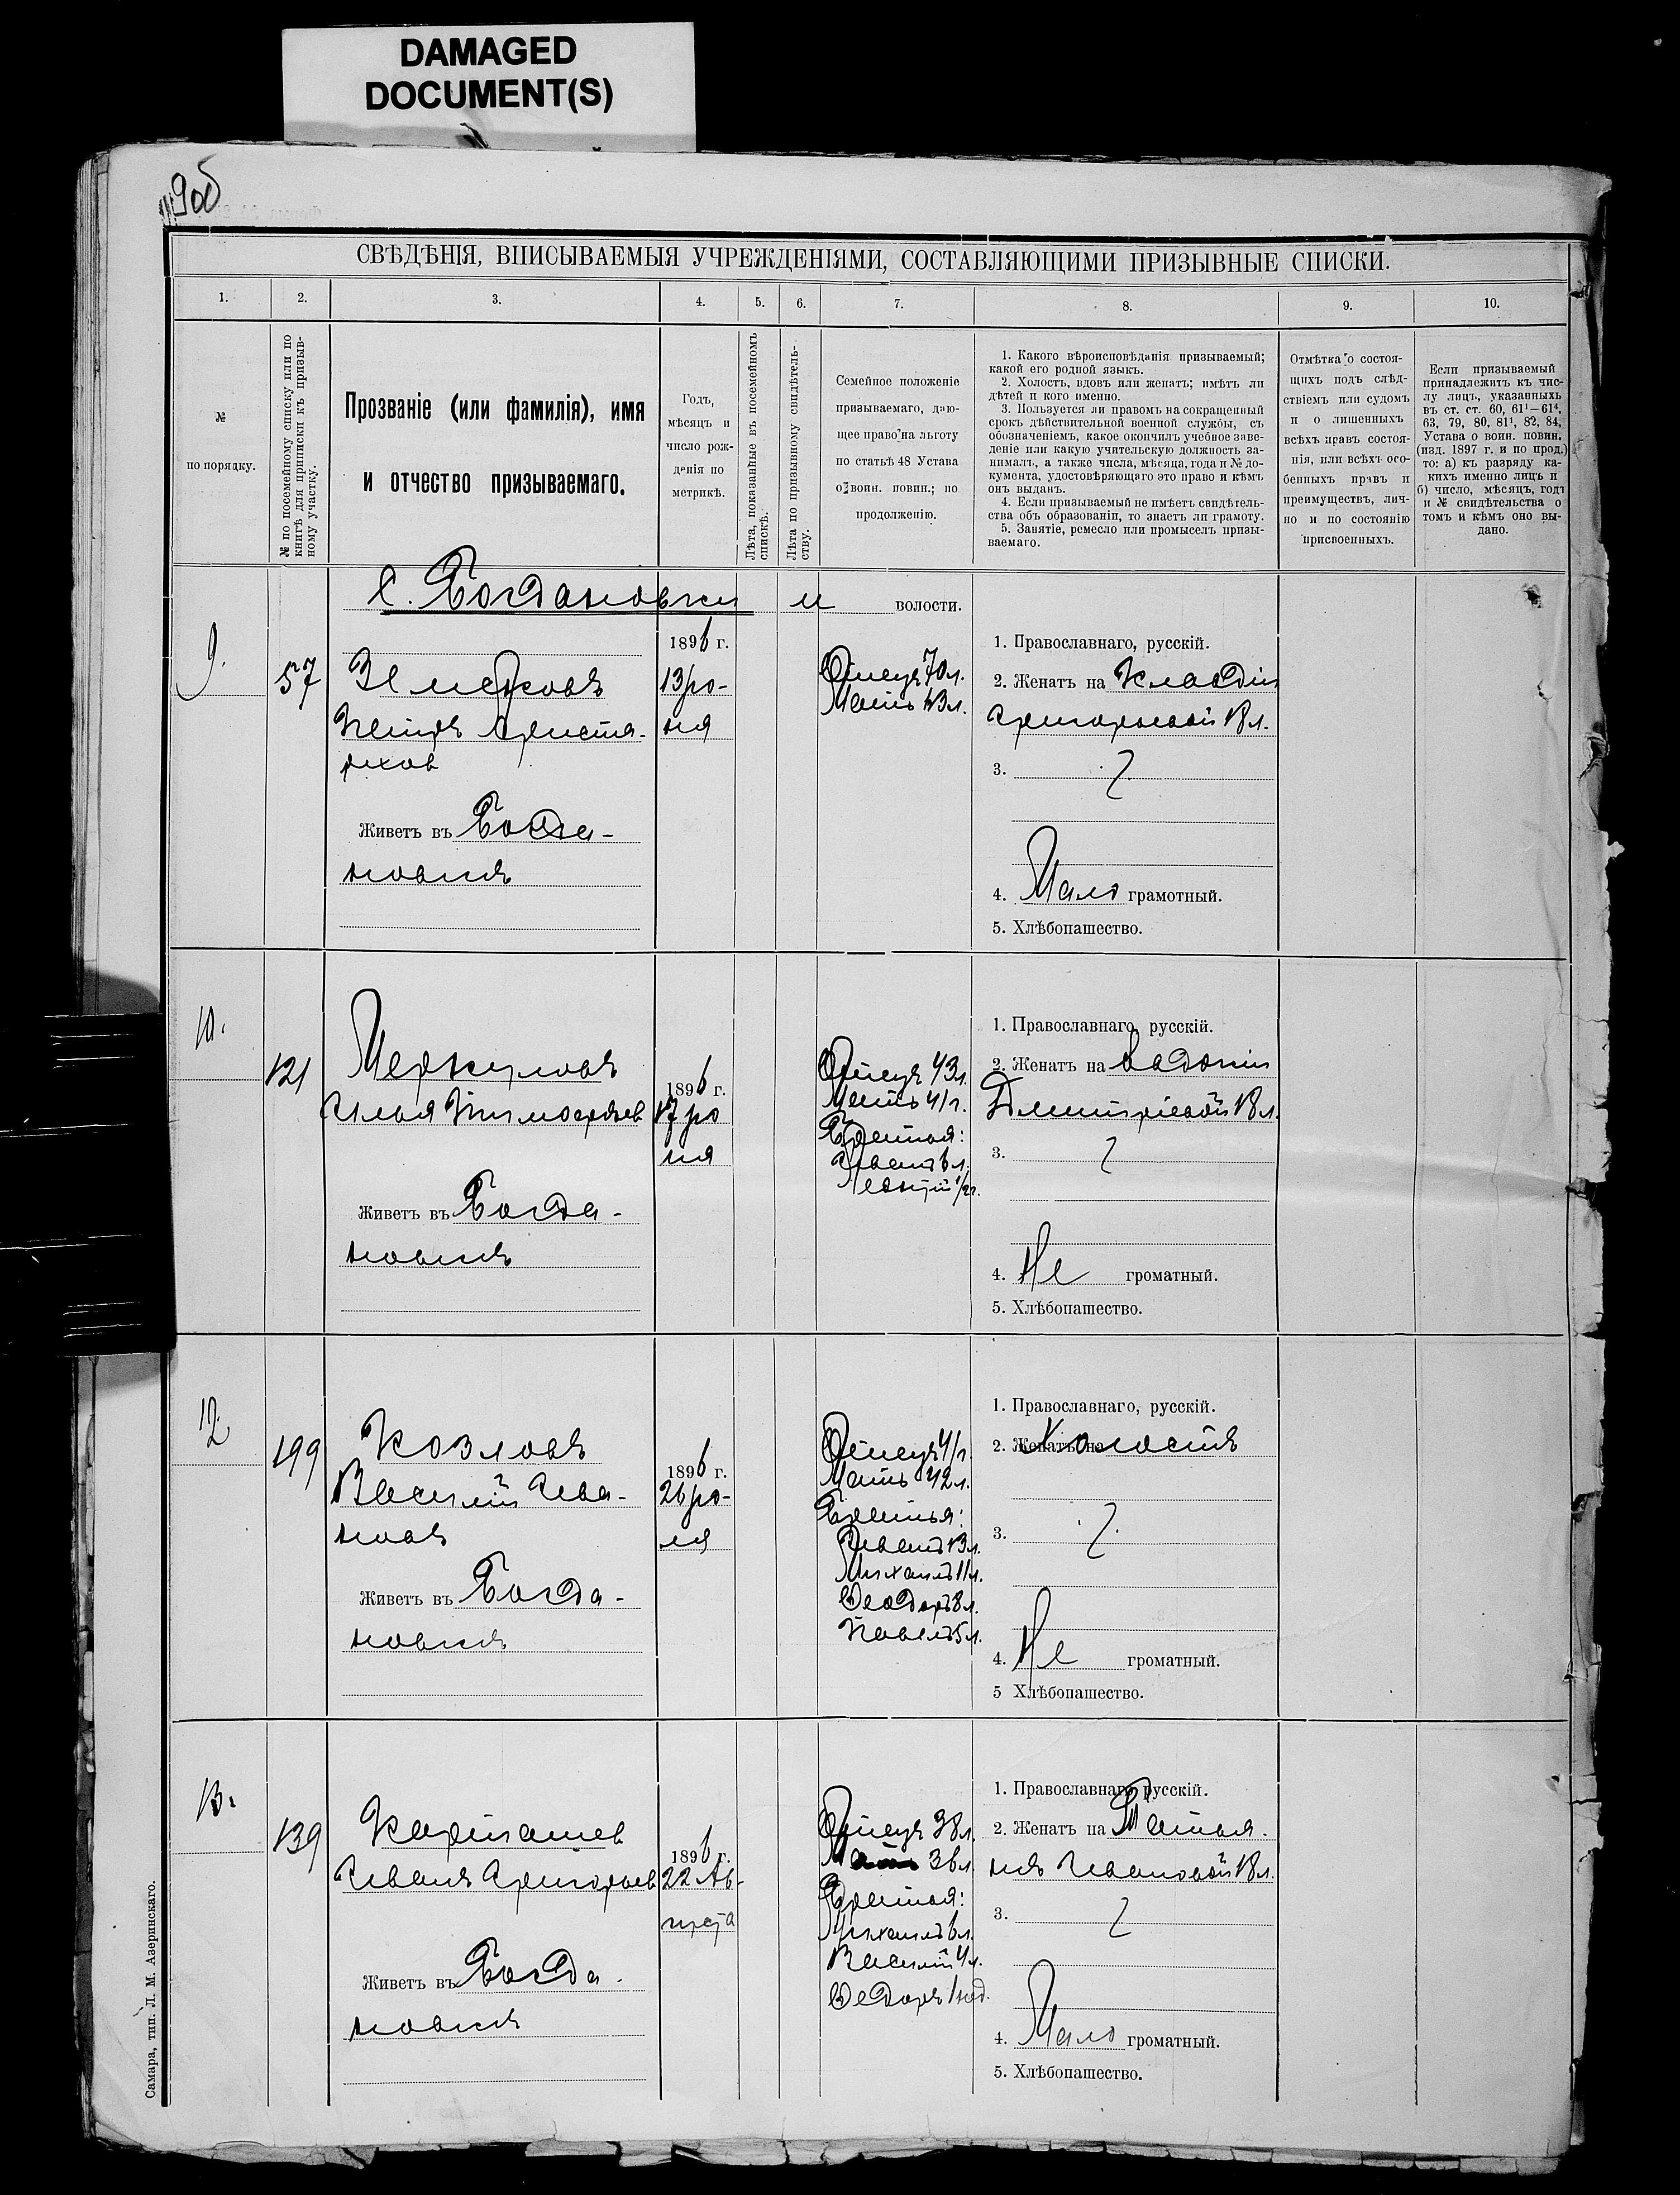 DAMAGED
DOCUMENT(S)
90об
СВѢДѢНІЯ, ВПИСЫВАЕМЫЯ УЧРЕЖДЕНІЯМИ, СОСТАВЛЯЮЩИМИ ПРИЗЫВНЫЕ СПИСКИ.
1. 2. 3. 4. 5. 6. 7. 8. 9. 10.
№
по порядку.
№ по посемейному списку или по
книгѣ для приписки къ призыв-
ному участку.
Прозваніе (или фамилія), имя
и отчество призываемаго.
Годъ,
мѣсяцъ и
число рож-
денія по
метрикѣ.
Лѣта, показанные въ посемейномъ
спискѣ.
Лѣта по призывному свидѣтель-
ству.
Семейное положеніе
призываемаго, даю-
щее право на льготу
по статьѣ 48 Устава
о воин. повин.; по
продолженію.
1. Какого вѣроисповѣданія призываемый;
какой его родной языкъ.
2. Холостъ, вдовъ или женатъ; имѣтъ ли
дѣтей и кого именно.
3. Пользуется ли правомъ на сокращенный
срокъ дѣйствительной военной службы, съ
обозначеніемъ, какое окончилъ учебное заве-
деніе или какую учительскую должность за-
нималъ, а также числа, мѣсяца, года и № до-
кумента, удостовѣряющаго это право и кѣмъ
онъ выданъ.
4. Если призываемый не имѣетъ свидѣтель-
ства объ образованіи, то знаетъ ли грамоту.
5. Занятіе, ремесло или промыселъ призы-
ваемаго.
Отмѣтка о состоя-
щихъ подъ слѣд-
ствіемъ или судомъ
и о лишенныхъ
всѣхъ правъ состоя-
нія, или всѣхъ осо-
бенныхъ правъ и
преимуществъ, лич-
но и по состоянію
присвоенныхъ.
Если призываемый
принадлежитъ къ чис-
лу лицъ, указанныхъ
въ ст. ст. 60, 61¹—61⁴,
63, 79, 80, 81¹, 82, 84,
Устава о воин. повин.
(изд. 1897 г. и по прод.)
то: а) къ разряду ка-
кихъ именно лицъ и
б) число, мѣсяцъ, годъ
и № свидѣтельства о
томъ и кѣмъ оно вы-
дано.
С. Богдановки
волости.
9.
57
Петръ Ариста-
рхов
Живетъ въ Богда-
новкѣ
1896 г.
13 ію-
ня
Отецъ 70 л.
Мать
1. Православнаго, русскій.
2. Женатъ на Клавдіи
Григорьевой 18 л.
3.
4. Мало грамотный.
5. Хлѣбопашество.
10.
121
Меркуловъ
Илья Тимофѣев
Живетъ въ Богда-
новкѣ
1896 г.
17 ію
ня
Отецъ 43 л.
Мать 41 г.
Братья:
Иванъ 6 л.
1/2 г.
1. Православнаго, русскій.
2. Женатъ на Евдокіи
Дмитріевой 18 л.
3.
4. Не громатный.
5. Хлѣбопашество.
12
199
Козловъ
Василій Ива-
новъ
Живетъ въ Богда-
новкѣ
1896 г.
26 ію-
ля
Отецъ 41 г.
Мать 42 л.
Братья:
Иванъ 13 л.
Михаилъ 11 л.
Ѳеодоръ 8 л.
Павелъ 5 л.
1. Православнаго, русскій.
2. Женатъ на Холостъ
3.
4. Не громатный.
5 Хлѣбопашество.
13.
139
Карташев
Иванъ Григорьев
Живетъ въ Богда-
новкѣ
1896 г.
22 Ав-
густа
Отецъ 38 л.
Мать 36 л.
Братья:
Михаилъ 6 л.
Василій 4 л.
Ѳедоръ 1 нед.
1. Православнаго, русскій.
2. Женатъ на Татья-
нѣ Ивановой 18 л.
3.
4. Мало громатный.
5. Хлѣбопашество.
Самара, тип. Л. М. Азеринскаго.